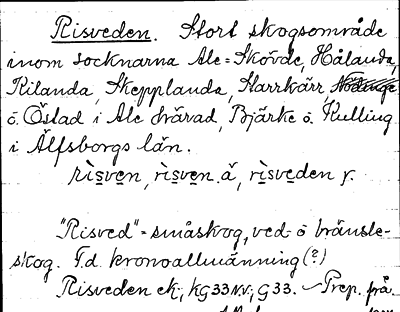 Risveden. Stort skogsområde
inom socknarna Ale=Skövde, Hålanda,
Rilanda, Skepplanda, Starrkärr, Nödinge
o. Östad i Ale härad, Bjärke o. Kulling
i Älfsborgs län.
risven, risven.å, risveden r.
"Risved" = småskog, ved- o bränsle-
skog. F.d. kronoallmänning (?)
Risveden ek; KG33NV; G33. Prep. frå.